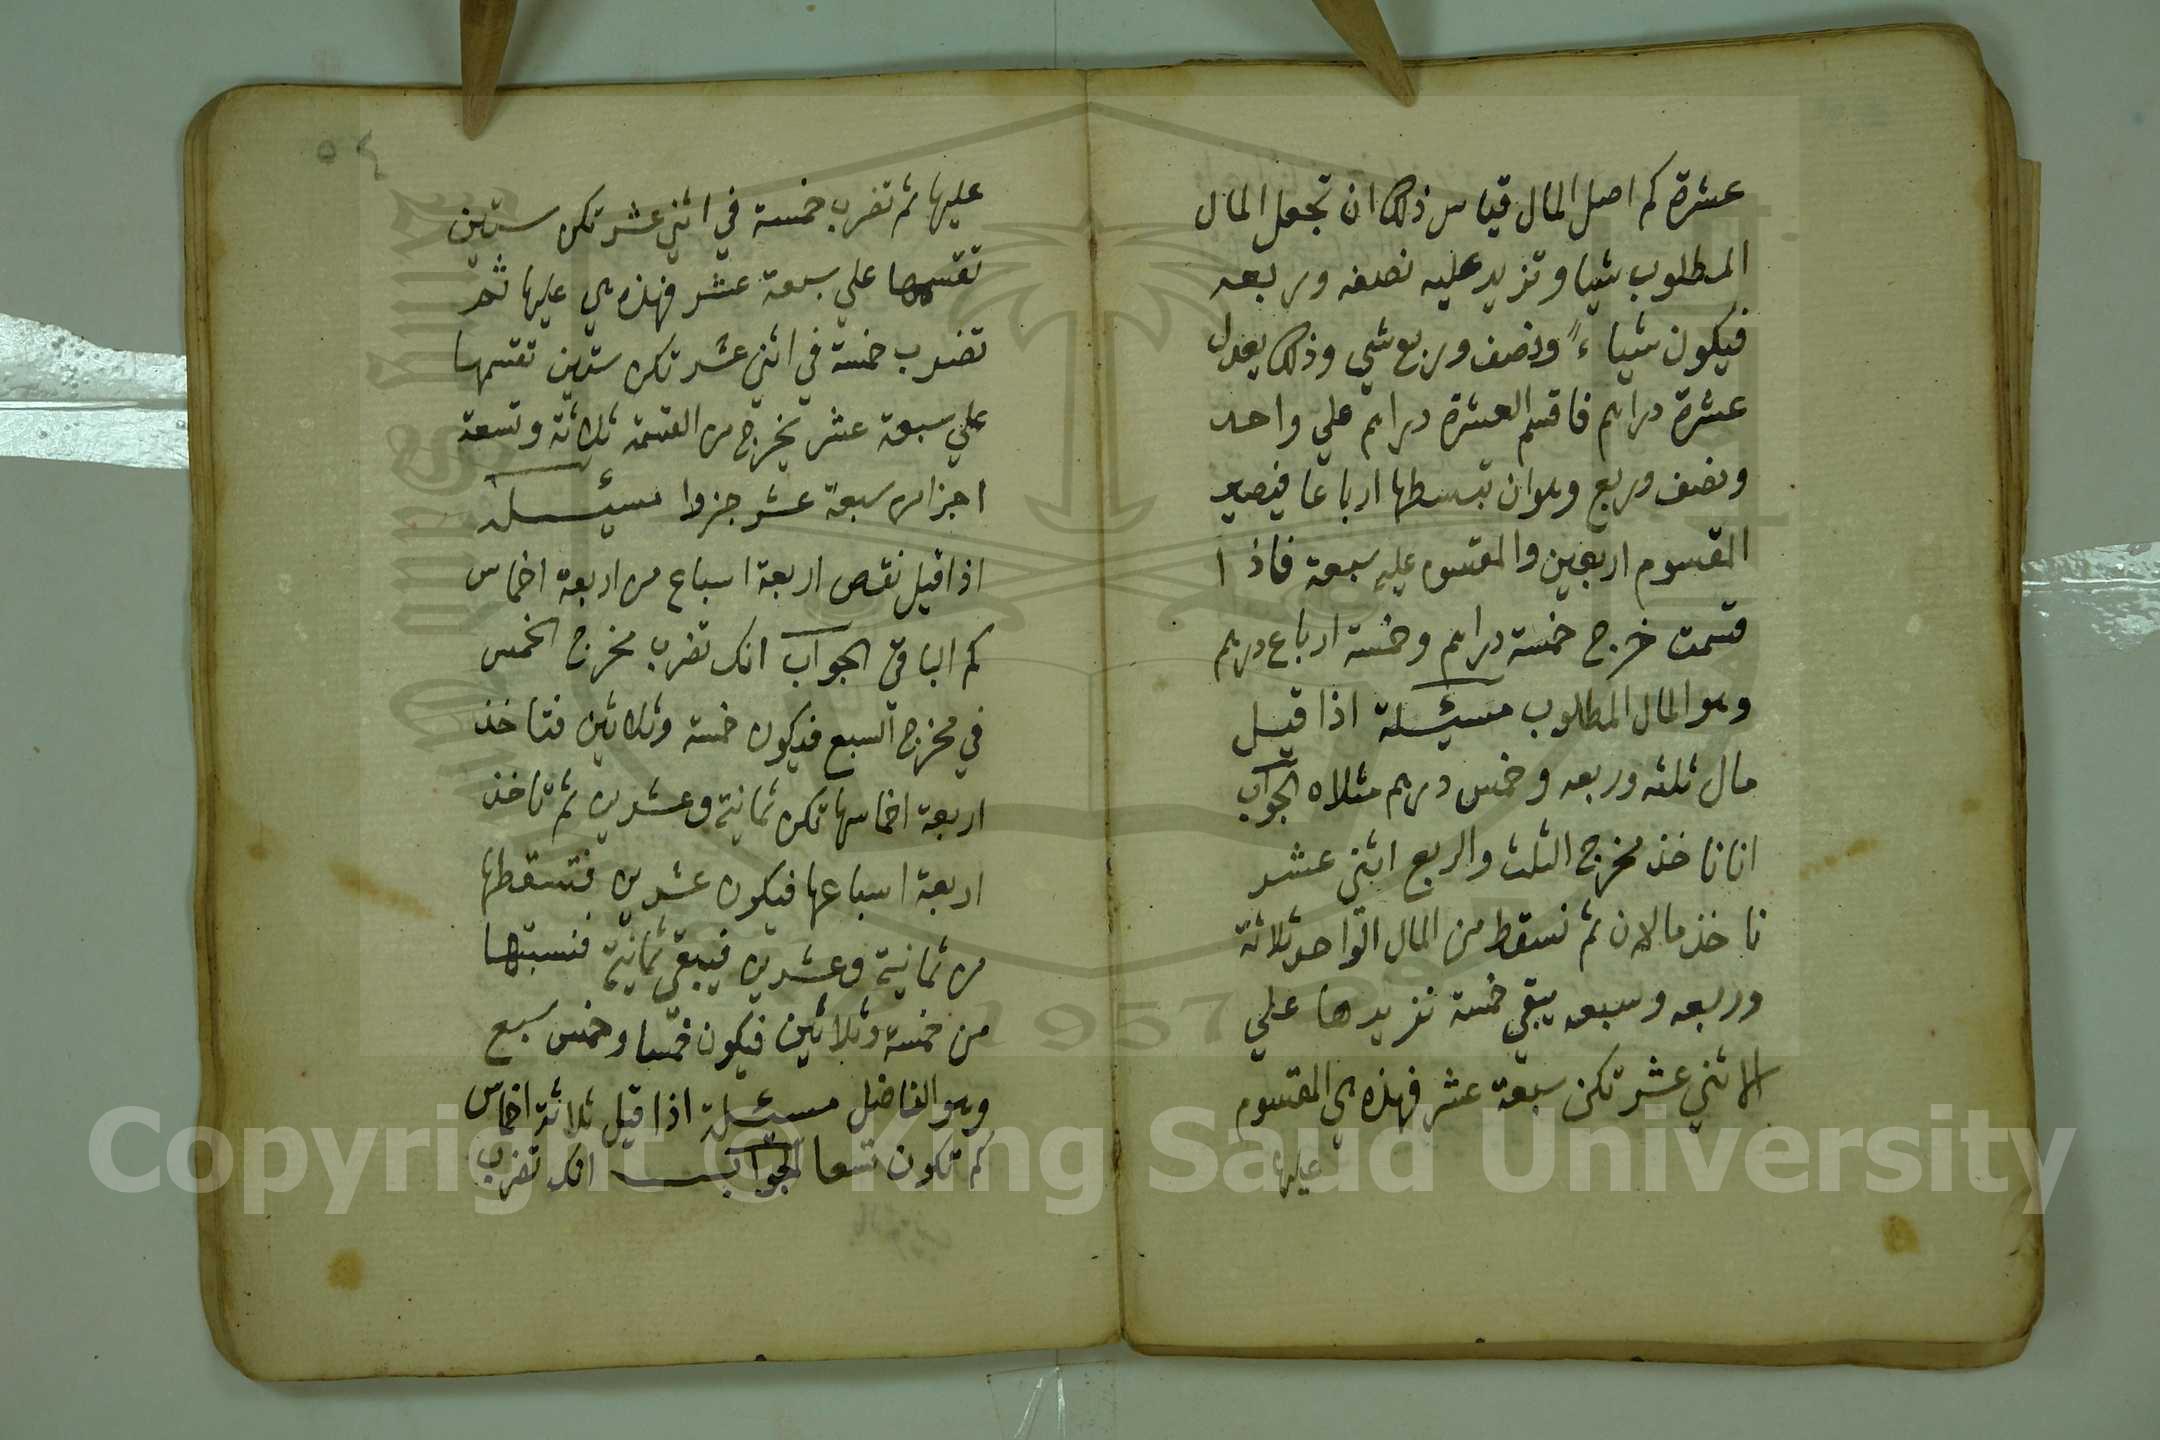 عشرة كم اصل المال قياس ذلك ان تجعل المال
المطلوب شيا وتزيد عليه نصفه وربعه
فيكون شياءً ونصف وربع شي وذلك يعدل
عشرة دراهم فاقسم العشرة دراهم علي واحد
ونصف وربع وهو ان تبسطها ارباعا فيصير
المقسوم اربعين والمقسوم عليه سبعة فاذا
قسمت خرج خمسة دراهم وخمسة ارباع درهم
وهو المال المطلوب مسيلة اذا قيل
مال ثلثه وربعه وخمس درهم مثلاه الجواب
انا ناخذ مخرج الثلث والربع اثني عشر
ناخذ مالان ثم نسقط من المال الواحد ثلاثة
وربعه وسبعه يبقي خمسة نزيدها علي
الاثني عشر تكن سبعة عشر فهذه هي المقسوم
عليها
٥٤
عليها ثم تضرب خمسة في اثني عشر تكن ستين
تقسمها علي سبعة عشر فهذه هي عليها ثم
تضرب خمسة في اثني عشر تكن ستين تقسمها
علي سبعة عشر يخرج من القسمة ثلاثة وتسعة
اجزا من سبعة عشر جزوا مسيئلة
اذا قيل نقص اربعة اسباع من اربعة اخماس
كم الباقي الجواب انك تضرب مخرج الخمس
في مخرج السبع فيكون خمسة وثلاثين فتاخذ
اربعة اخماسها تكن ثمانية وعشرين ثم تاخذ
اربعة اسباعها فيكون عشرين فتسقطها
من ثمانية وعشرين فيبقي ثمانية فنسبتها
من خمسة وثلاثين فيكون خمسا وخمس سبع
وهو الفاضل مسيئلة اذا قيل ثلاثة اخماس
كم تكون تسعا الجواب انك تضرب
1957
Copyright © King Saud University